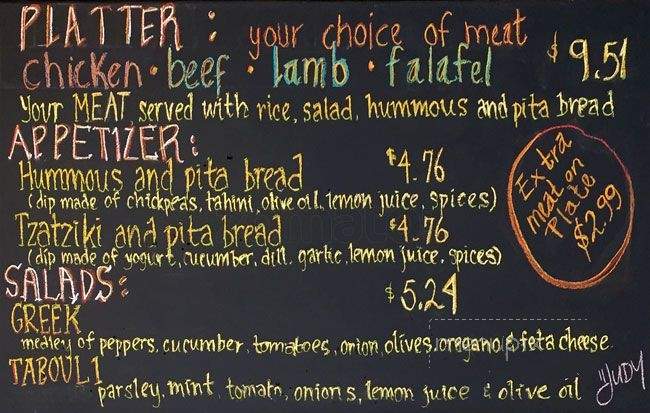 PLATTER : your choice of meat
chicken · beef · lamb · falafel $9.51
Your MEAT served with rice, salad, hummous and pita bread
APPETIZER:
Hummous and pita bread $4.76
(dip made of chickpeas, tahini, olive oil, lemon juice, spices)
Tzatziki and pita bread $4.76
(dip made of yogurt, cucumber, dill, garlic, lemon juice, spices)
Extra
meat on
Plate
$2.99
SALADS: $5.24
GREEK
medley of peppers, cucumber, tomatoes, onion, olives, oregano & feta cheese
TABOULI
parsley, mint, tomato, onions, lemon juice & olive oil
"JUDY